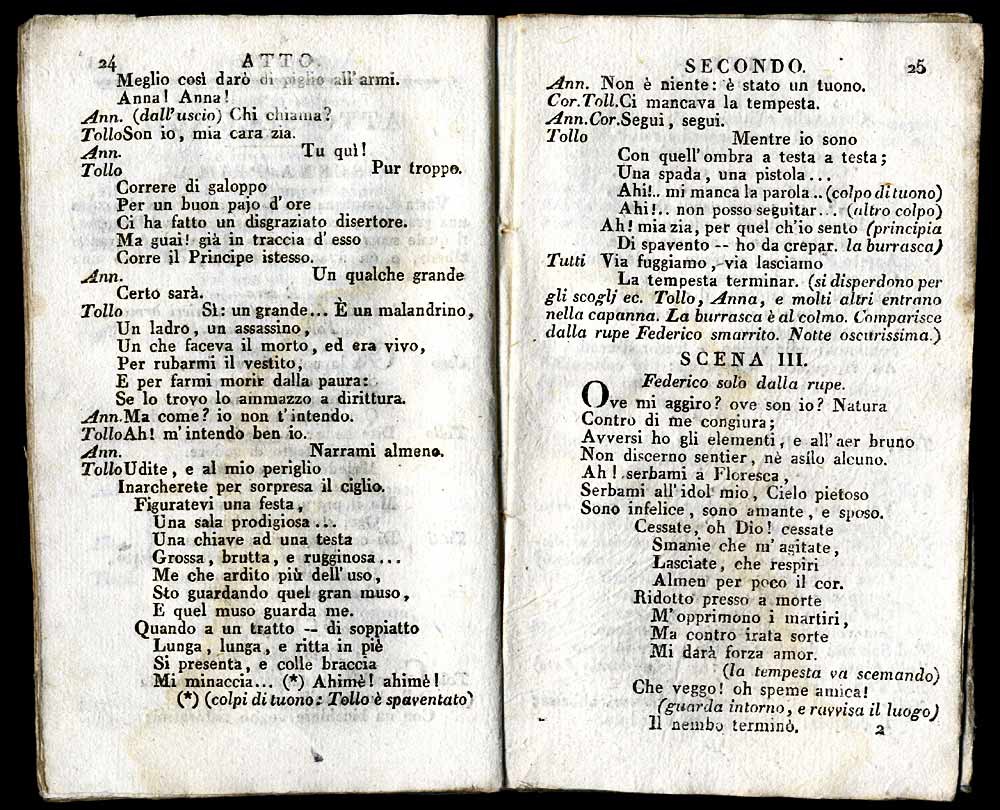 24 ATTO.
Meglio così darò di piglio all'armi.
Anna! Anna!
Ann. (dall'uscio) Chi chiama?
Tollo Son io, mia cara zia.
Ann. Tu quì!
Tollo Pur troppo.
Correre di galoppo
Per un buon pajo d'ore
Ci ha fatto un disgraziato disertore.
Ma guai! già in traccia d'esso
Corre il Principe istesso.
Ann. Un qualche grande
Certo sarà.
Tollo Sì: un grande... È un malandrino,
Un ladro, un assassino,
Un che faceva il morto, ed era vivo,
Per rubarmi il vestito,
E per farmi morir dalla paura:
Se lo trovo lo ammazzo a dirittura.
Ann. Ma come? io non t'intendo.
Tollo Ah! m'intendo ben io.
Ann. Narrami almeno.
Tollo Udite, e al mio periglio
Inarcherete per sorpresa il ciglio.
Figuratevi una festa,
Una sala prodigiosa...
Una chiave ad una testa
Grossa, brutta, e rugginosa...
Me che ardito più dell'uso,
Sto guardando quel gran muso,
E quel muso guarda me.
Quando a un tratto -- di soppiatto
Lunga, lunga, e ritta in piè
Si presenta, e colle braccia
Mi minaccia... (*) Ahimè! ahimè!
(*) (colpi di tuono: Tollo è spaventato)
SECONDO. 25
Ann. Non è niente: è stato un tuono.
Cor. Toll. Ci mancava la tempesta.
Ann. Cor. Segui, segui.
Tollo Mentre io sono
Con quell'ombra a testa a testa;
Una spada, una pistola...
Ahi!.. mi manca la parola.. (colpo di tuono)
Ahi!.. non posso seguitar... (altro colpo)
Ah! mia zia, per quel ch'io sento (principia
Di spavento -- ho da crepar. la burrasca)
Tutti Via fuggiamo, via lasciamo
La tempesta terminar. (si disperdono per
gli scoglj ec. Tollo, Anna, e molti altri entrano
nella capanna. La burrasca è al colmo. Comparisce
dalla rupe Federico smarrito. Notte oscurissima.)
SCENA III.
Federico solo dalla rupe.
Ove mi aggiro? ove son io? Natura
Contro di me congiura;
Avversi ho gli elementi, e all'aer bruno
Non discerno sentier, nè asilo alcuno.
Ah! serbami a Floresca,
Serbami all'idol mio, Cielo pietoso
Sono infelice, sono amante, e sposo.
Cessate, oh Dio! cessate
Smanie che m'agitate,
Lasciate, che respiri
Almen per poco il cor.
Ridotto presso a morte
M'opprimono i martiri,
Ma contro irata sorte
Mi darà forza amor.
(la tempesta va scemando)
Che veggo! oh speme amica!
(guarda intorno, e ravvisa il luogo)
Il nembo terminò. 2